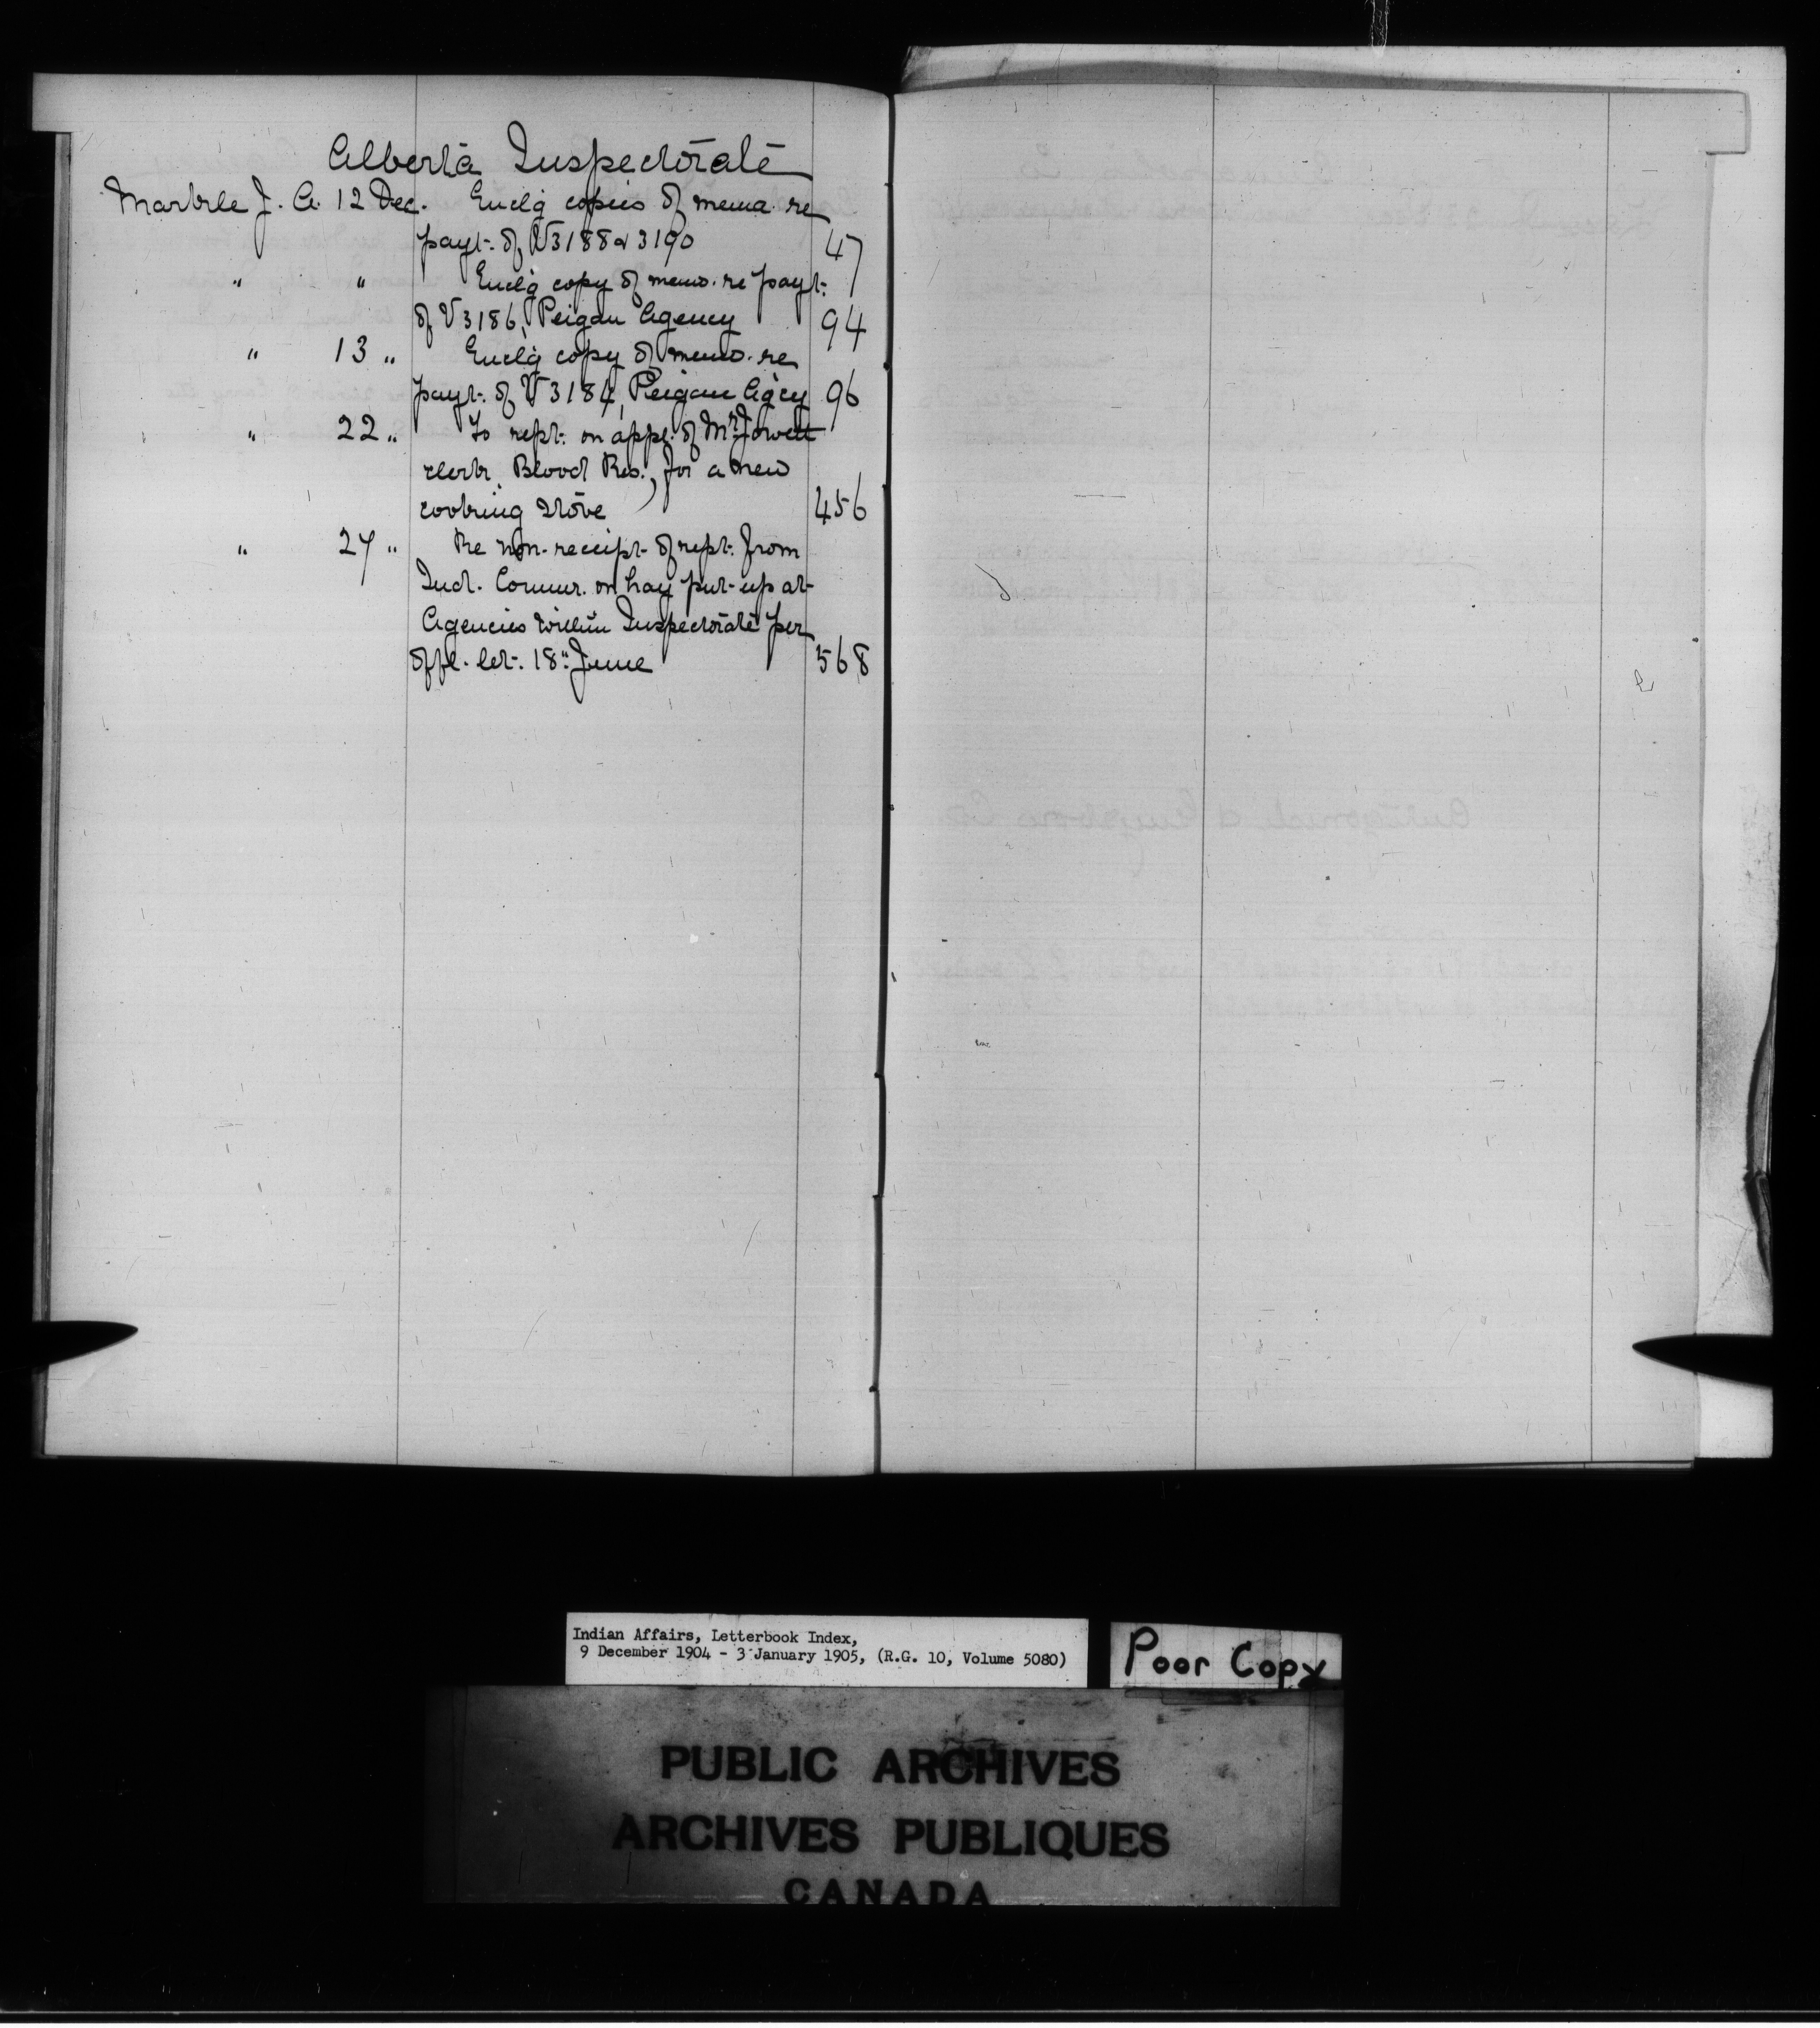 Alberta Inspectorate
Markle J. A. 12 Dec. Enclg copies of mema. re
payt. of V3188 & 3190 47
" " Enclg copy of memo. re payt.
of V3186, Peigan Agency 94
" 13 " Enclg copy of memo. re
payt. of V3184, Peigan Agcy 96
" 22 " To rept. on appl. of Mr Jowett
clerk, Blood Res., for a new
cooking stove 456
" 27 " Re non-receipt of rept. from
Ind. Commr. on hay put-up at
Agencies within Inspectorate per
offl. let. 18" June 568
Indian Affairs, Letterbook Index,
9 December 1904 - 3 January 1905, (R.G. 10, Volume 5080)
Poor Copy
PUBLIC ARCHIVES
ARCHIVES PUBLIQUES
CANADA